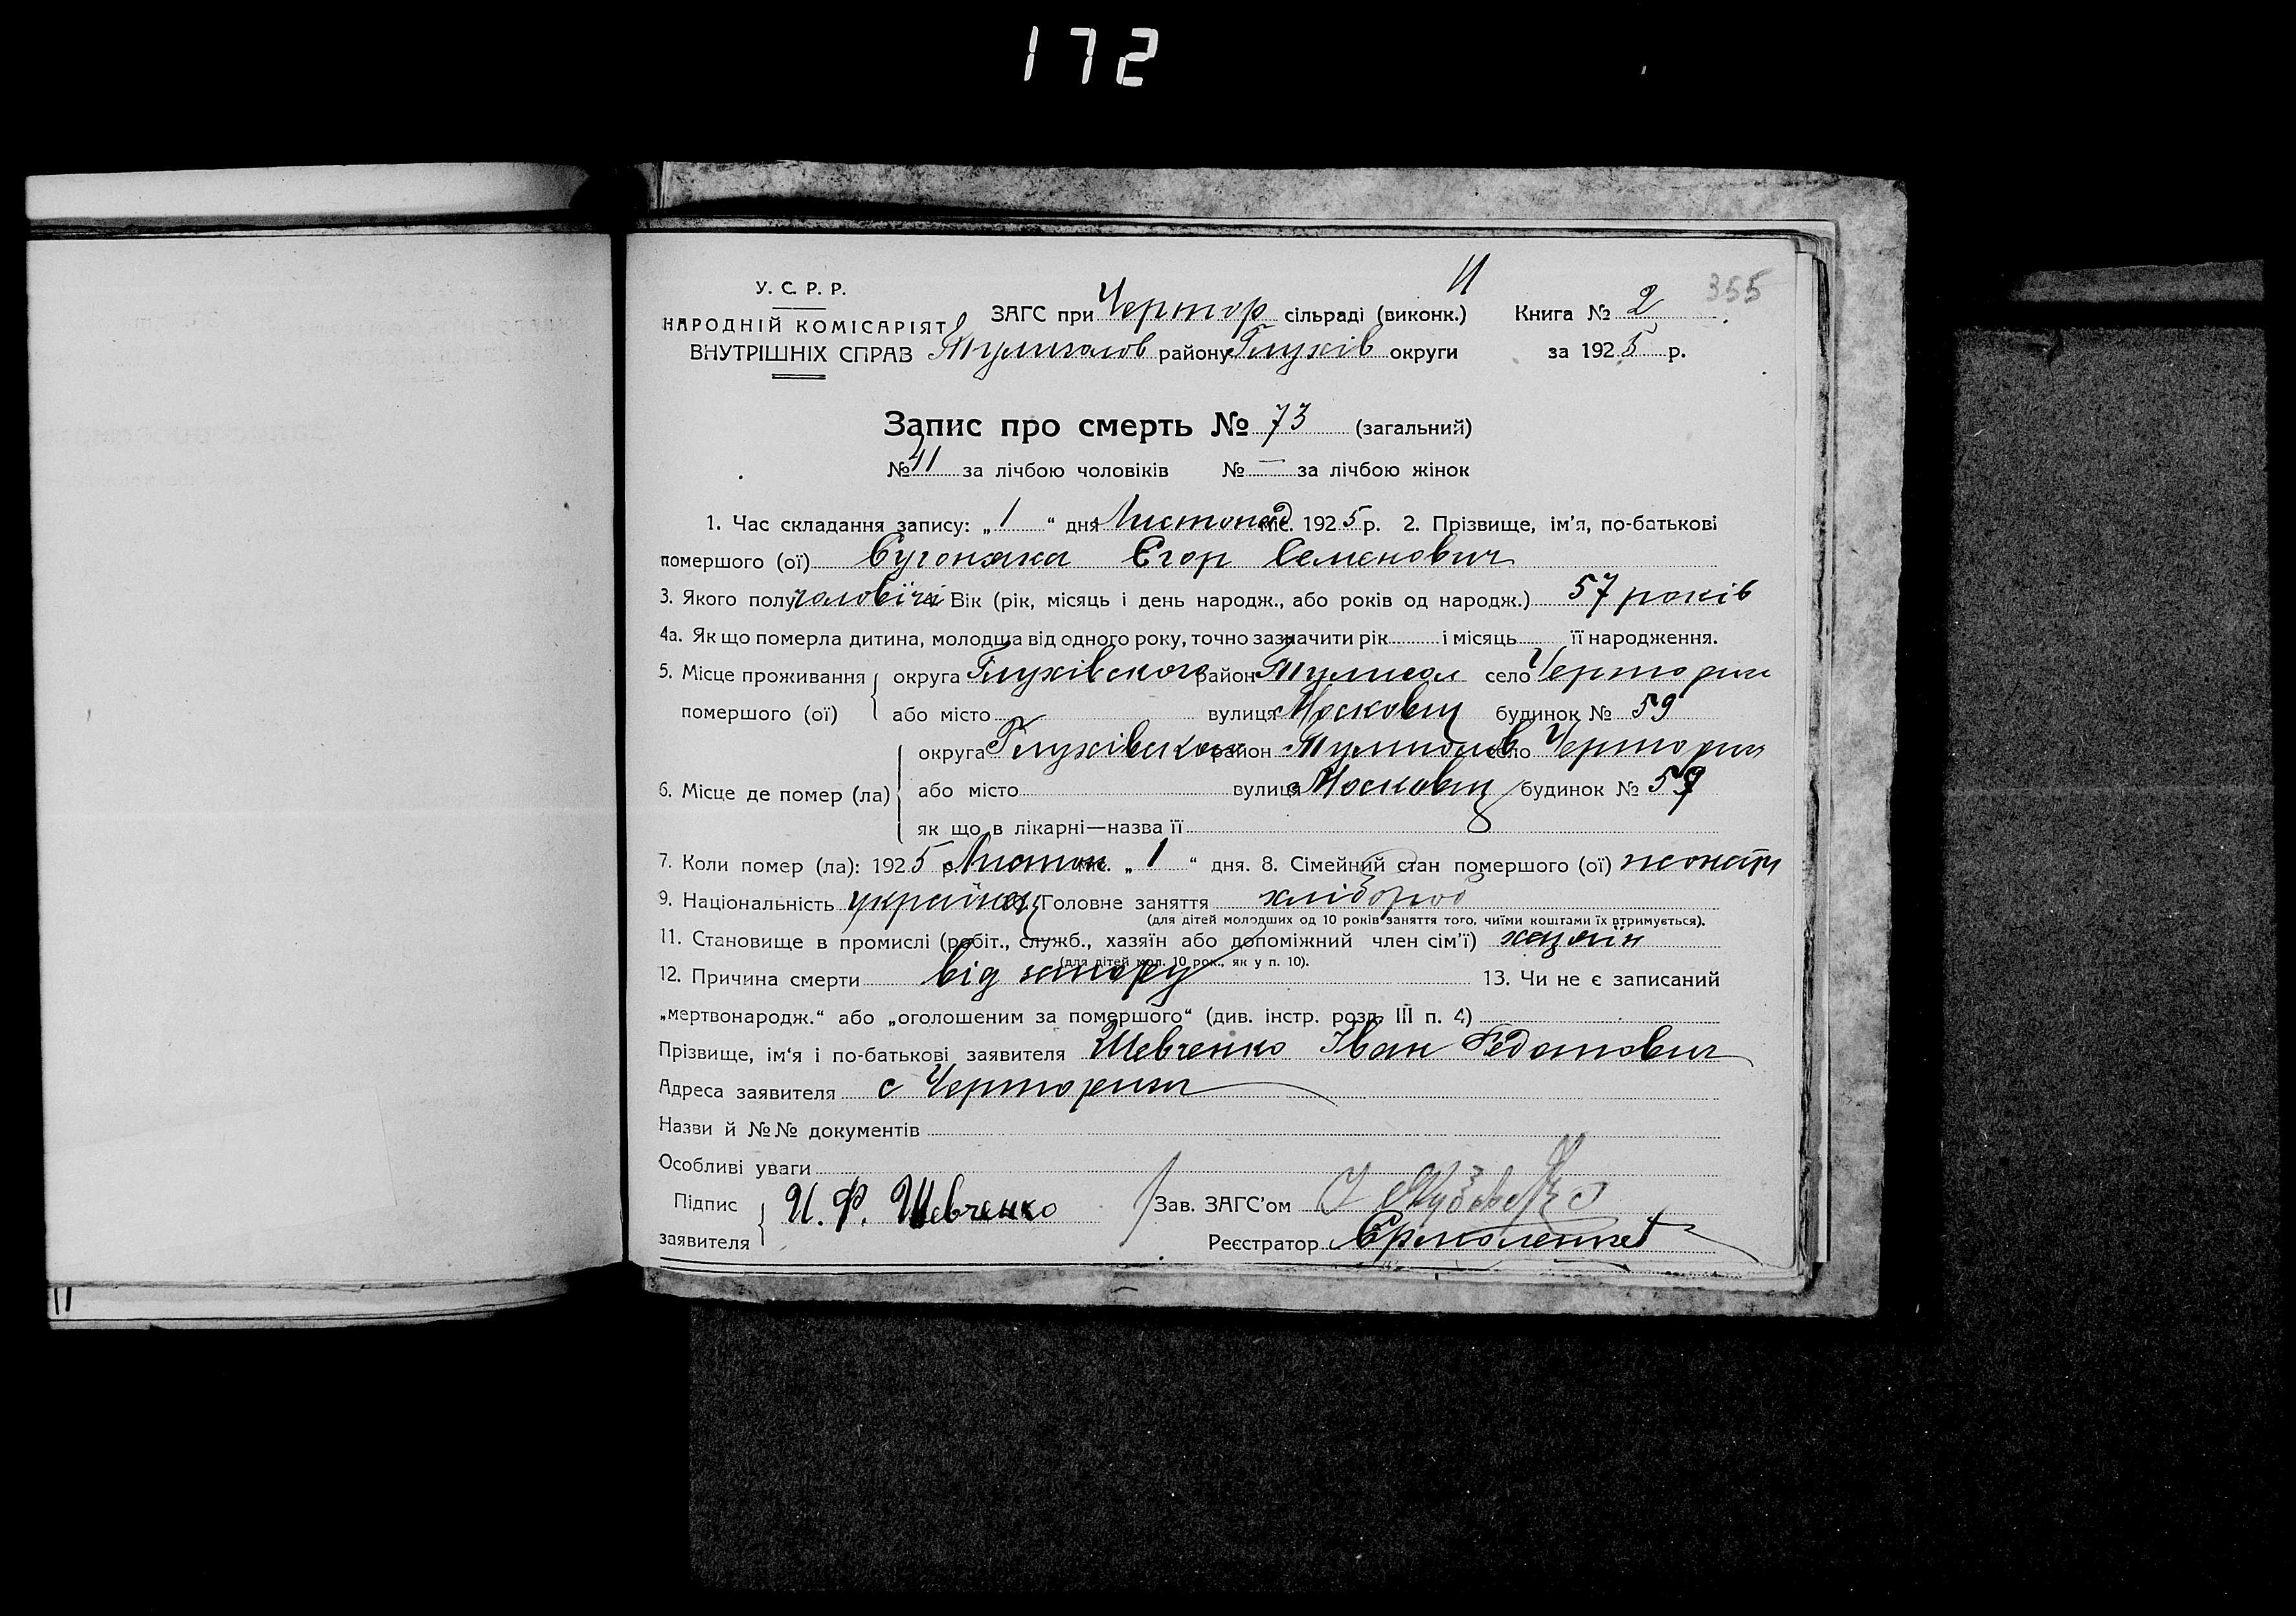 172
У. С. Р. Р.
НАРОДНІЙ КОМІСАРІЯТ
ВНУТРІШНІХ СПРАВ
11
355
ЗАГС при Чертор сільраді (виконк.) Книга № 2
Тулиголов району Глухів округи за 1925 р.
Запис про смерть № 73 (загальний)
№ 41 за лічбою чоловіків № — за лічбою жінок
1. Час складання запису: „1“ дня Листопад міс. 1925 р. 2. Прізвище, ім'я, по-батькові
помершого (ої) Сугоняка Єгор Семенович
3. Якого полу чоловічі Вік (рік, місяць і день народж., або років од народж.) 57 років
4а. Як що померла дитина, молодша від одного року, точно зазначити рік і місяць її народження.
5. Місце проживання округа Глухівского район Тулигол село Черториги
помершого (ої) або місто вулиця Московщ будинок № 59
округа Глухівского район Тулиголов село Черториги
6. Місце де помер (ла) або місто вулиця Московщ будинок № 59
як що в лікарні—назва її
7. Коли помер (ла): 1925 р. Листоп міс. „1“ дня. 8. Сімейний стан помершого (ої) жонати
9. Національність україне Головне заняття хлібороб
(для дітей молодших од 10 років заняття того, чиїми коштами їх втримується).
11. Становище в промислі (робіт., служб., хазяїн або допоміжний член сім'ї) хазяїн
(для дітей мол. 10 рок., як у п. 10).
12. Причина смерти від запору 13. Чи не є записаний
„мертвонародж.“ або „оголошеним за помершого“ (див. інстр. розд. III п. 4)
Прізвище, ім'я і по-батькові заявителя Шевченко Іван Федотович
Адреса заявителя с Черториги
Назви й №№ документів
Особливі уваги
Підпис заявителя И. Ф. Шевченко Зав. ЗАГС'ом
Реєстратор Єрмоленко
11